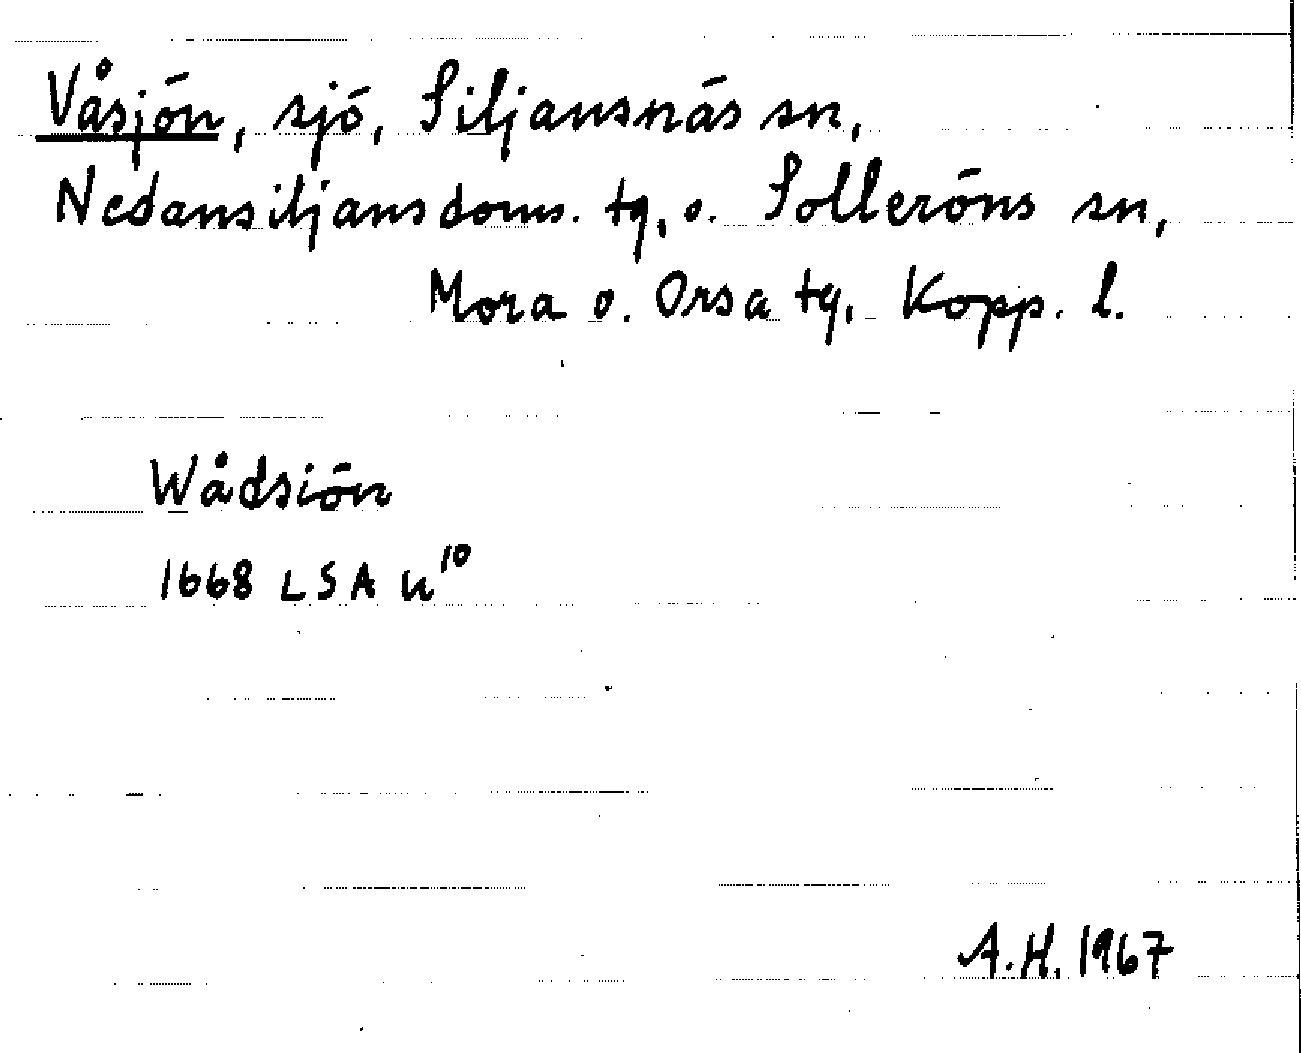 Våsjön, sjö, Siljansnäs sn,
Nedansiljans doms. tg, o. Solleröns sn,
Mora o. Orsa tg, Kopp. l.
Wådsiön
1668 LSA u¹⁰
A.H. 1967